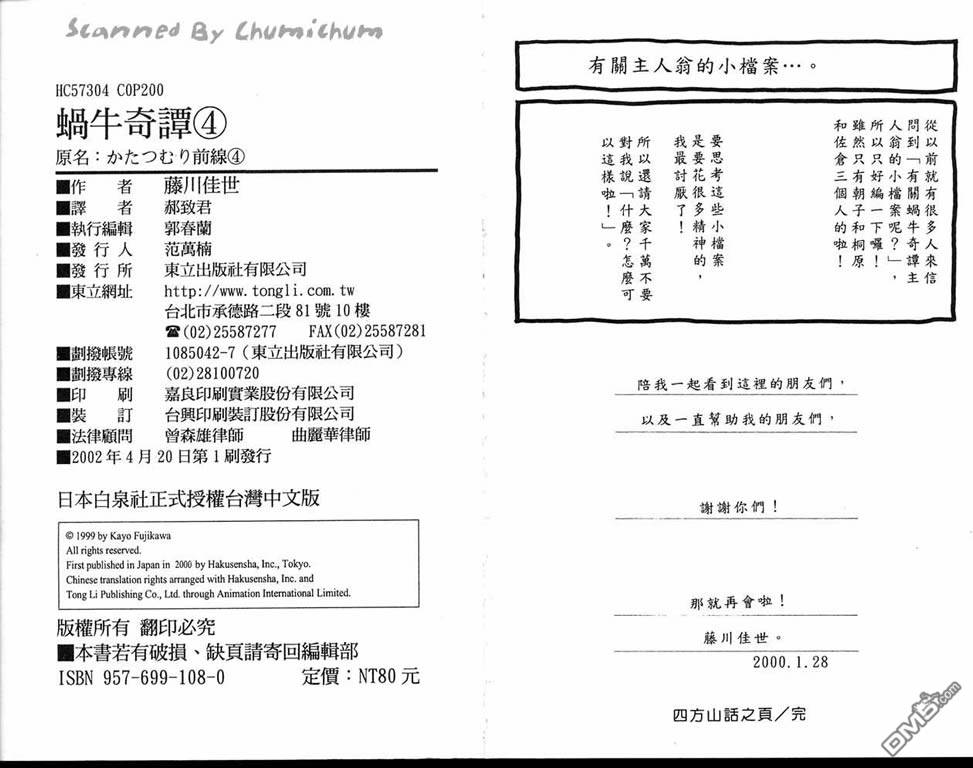 Scanned By Chumichum
HC57304 C0P200
蝸牛奇譚④
原名：かたつむり前線④
■作　者　藤川佳世
■譯　者　郝致君
■執行編輯　郭春蘭
■發行人　范萬楠
■發行所　東立出版社有限公司
■東立網址　http://www.tongli.com.tw
台北市承德路二段81號10樓
☎(02)25587277　FAX(02)25587281
■劃撥帳號　1085042-7（東立出版社有限公司）
■劃撥專線　(02)28100720
■印　刷　嘉良印刷實業股份有限公司
■裝　訂　台興印刷裝訂股份有限公司
■法律顧問　曾森雄律師　曲麗華律師
■2002年4月20日第1刷發行
日本白泉社正式授權台灣中文版
© 1999 by Kayo Fujikawa
All rights reserved.
First published in Japan in 2000 by Hakusensha, Inc., Tokyo.
Chinese translation rights arranged with Hakusensha, Inc. and
Tong Li Publishing Co., Ltd. through Animation International Limited.
版權所有 翻印必究
■本書若有破損、缺頁請寄回編輯部
ISBN 957-699-108-0　定價：NT80元
有關主人翁的小檔案…。
從以前就有很多人來信
問到「有關蝸牛奇譚主
人翁的小檔案呢？」，
所以只好編一下囉！
雖然只有朝子和桐原
和佐倉三個人的啦！
要思考這些小檔案
是要花很多精神的，
我最討厭了！
所以還請大家千萬不要
對我說「什麼？怎麼可
以這樣啦！」。
陪我一起看到這裡的朋友們，
以及一直幫助我的朋友們，
謝謝你們！
那就再會啦！
藤川佳世。
2000.1.28
四方山話之頁／完
DM5.com